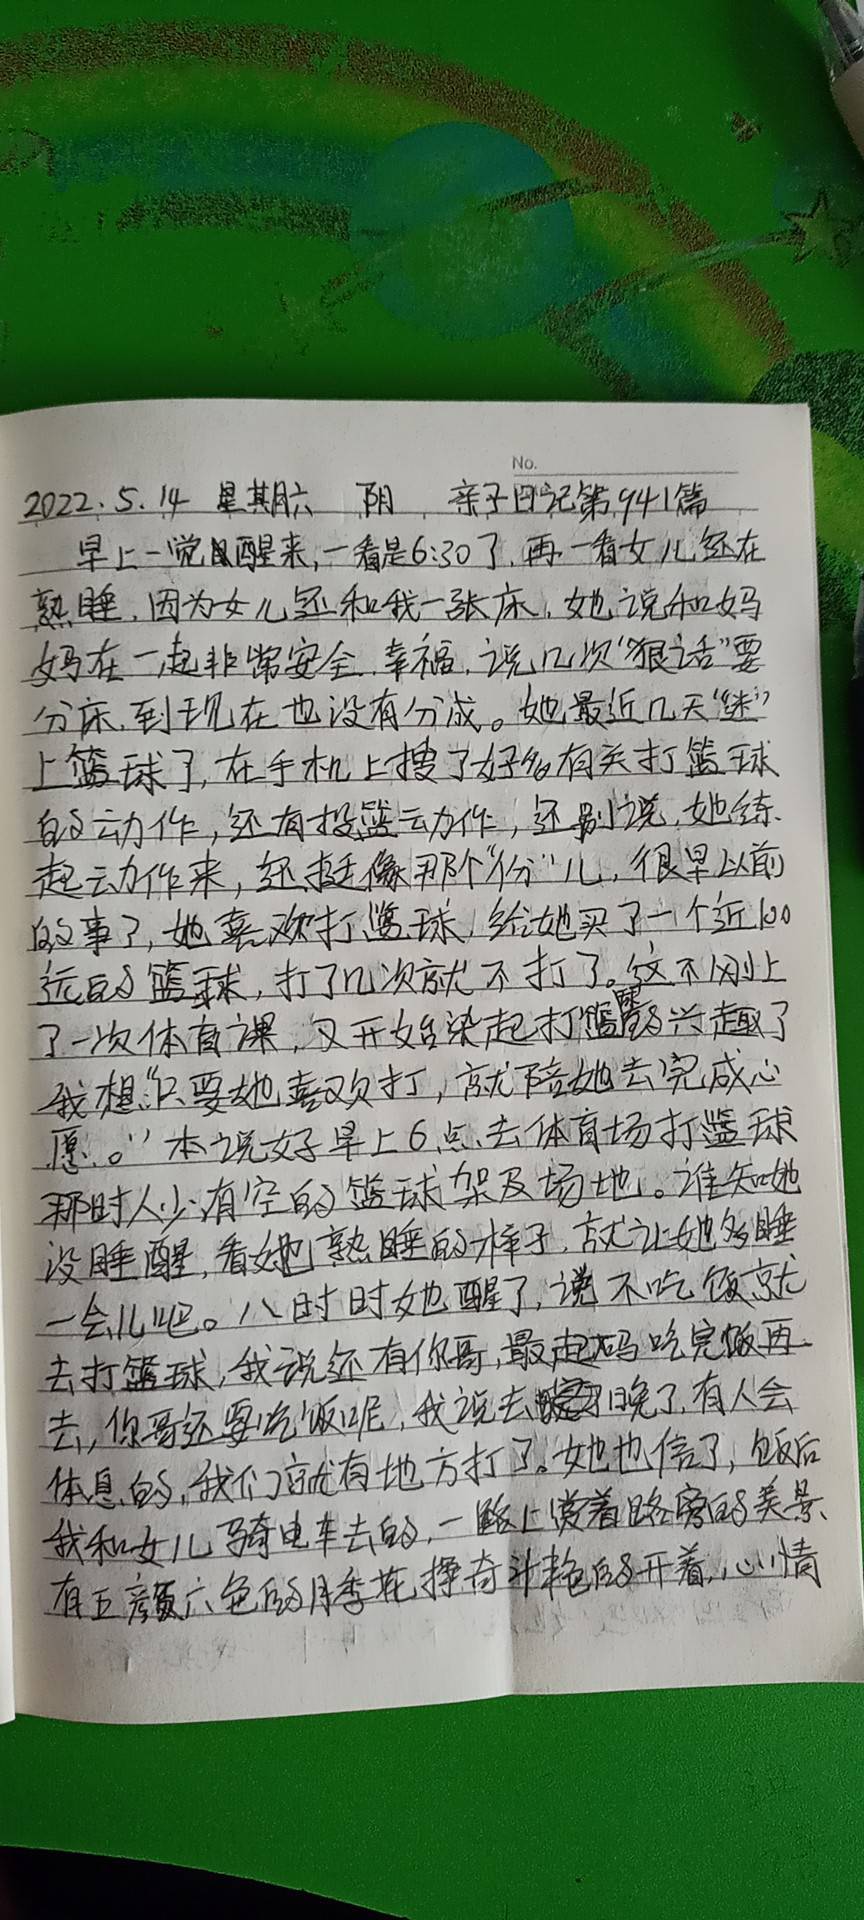 No.
2022.5.14 星期六 阴 亲子日记第941篇
早上一觉醒来,一看是6:30了,再一看女儿还在
熟睡,因为女儿还和我一张床,她说和妈
妈在一起非常安全,幸福,说几次“狠话”要
分床,到现在也没有分成。她最近几天“迷”
上篮球了,在手机上搜了好多有关打篮球
的动作,还有投篮动作,还别说,她练
起动作来,还挺像那个“份”儿,很早以前
的事了,她喜欢打篮球,给她买了一个近100
元的篮球,打了几次就不打了。这不刚上
了一次体育课,又开始染起打篮球的兴趣了
我想“只要她喜欢打,就陪她去完成心
愿。”本说好早上6点去体育场打篮球
那时人少有空的篮球架及场地。谁知她
没睡醒,看她熟睡的样子,就让她多睡
一会儿吧。八时时她醒了,说不吃饭就
去打篮球,我说还有你哥,最起码吃完饭再
去,你哥还要吃饭呢,我说去晚了,有人会
休息的,我们就有地方打了。她也信了,饭后
我和女儿骑电车去的,一路上赏着路旁的美景
有五颜六色的月季花挣奇斗艳的开着,心情